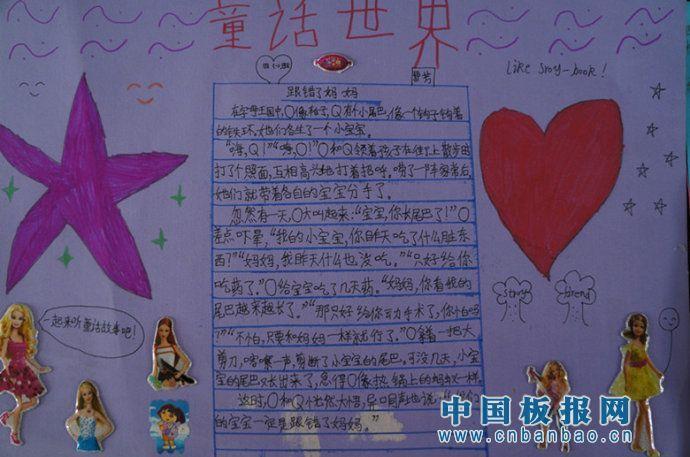 童话世界
Like Srory-book!
跟错了妈妈
在字母王国中,O像粒子,Q有个小尾巴,像一个钩子钩着
的铁环,她们各生了一个小宝宝。
“嗨,Q!”“嗨,O!”O和Q领着孩子在街上散步
打了个照面,互相高兴地打着招呼,唠了一阵家常后,
她们就带着各自的宝宝分手了。
忽然有一天,O大叫起来:“宝宝,你长尾巴了!”O
差点吓晕,“我的小宝宝,你昨天吃了什么脏东
西?”“妈妈,我昨天什么也没吃。”“只好给你
吃药了。”O给宝宝吃了几天药。“妈妈,你看我的
尾巴越来越长了。”“那只好给你动手术了,你怕吗
?”“不怕,只要和妈妈一样就行了。”O拿着一把大
剪刀,喀嚓一声,剪断了小宝宝的尾巴。可没几天,小宝
宝的尾巴又长出来了,急得O像热锅上的蚂蚁一样。
这时,O和Q才恍然大悟,异口同声地说:
的宝宝一定是跟错了妈妈。”
一起来听童话故事吧!
Story
brend
中国板报网
www.cnbanbao.cn